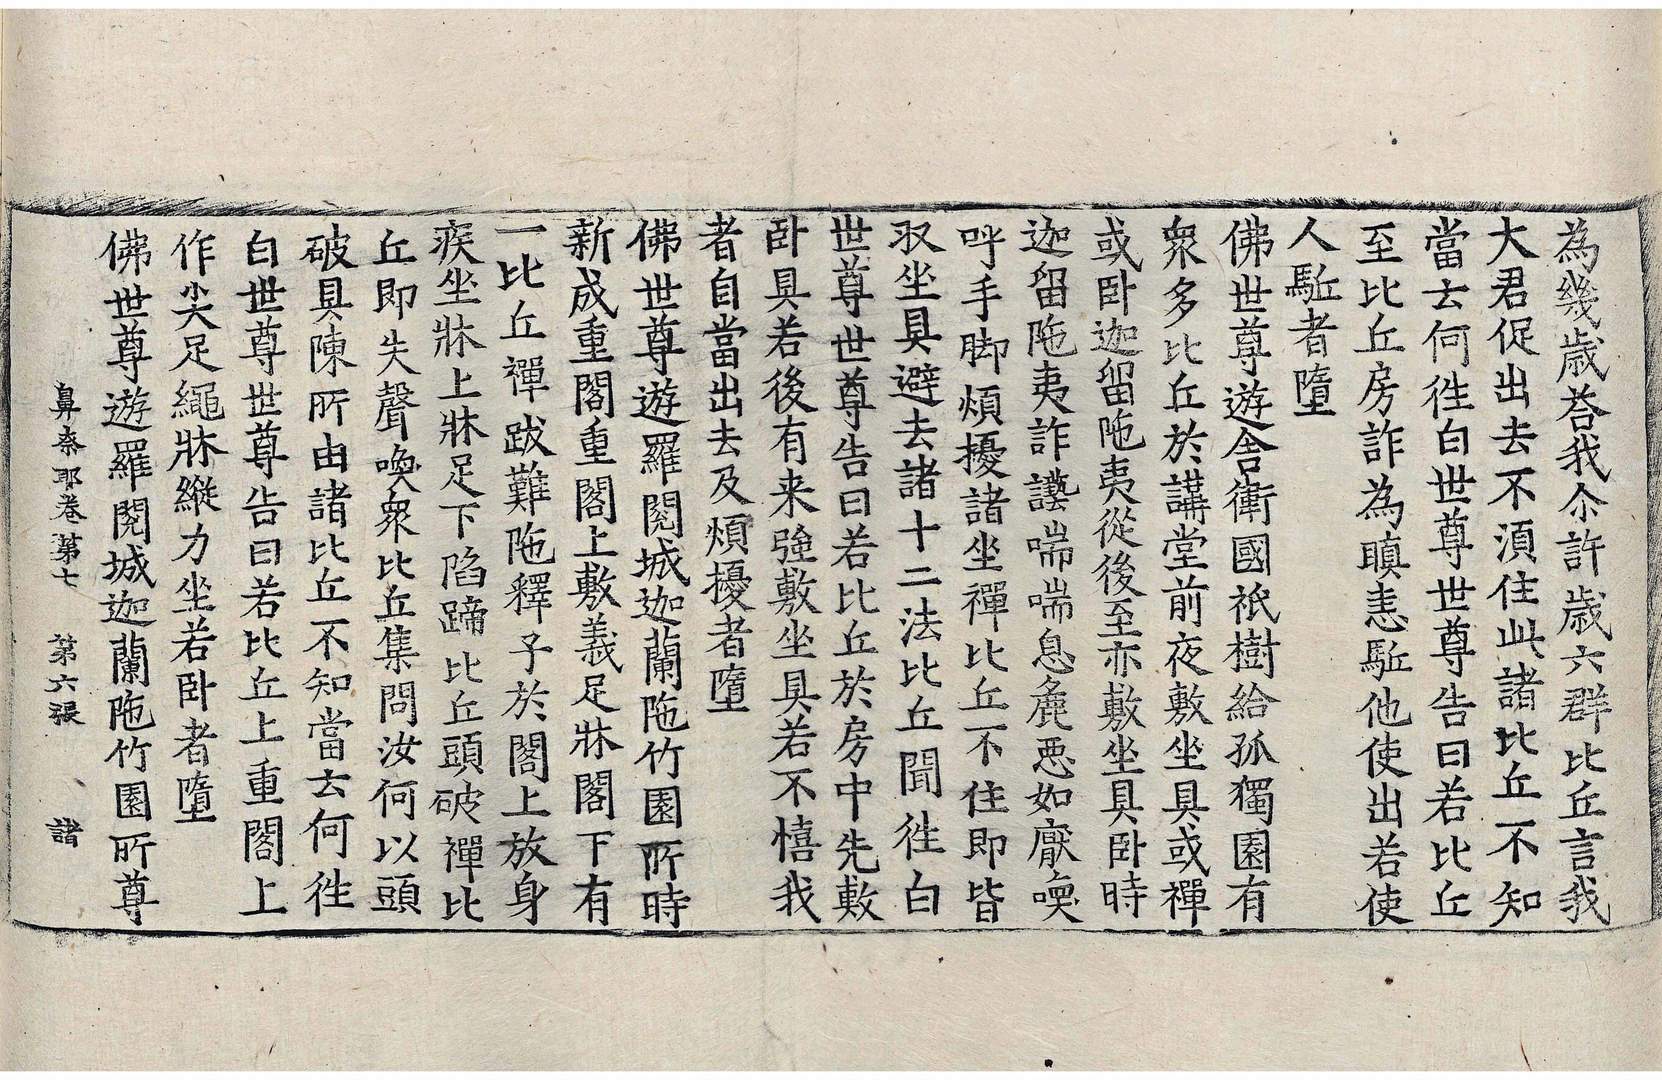 為幾歲荅我尒許歲六群比丘言我
大君促出去不湏住此諸比丘不知
當去何徃白世尊世尊告曰若比丘
至比丘房詐為瞋恚駈他使出若使
人駈者墮
佛世尊遊舍衛國祇樹給孤獨園有
衆多比丘於講堂前夜敷坐具或禪
或卧迦留陁夷從後至亦敷坐具卧時
迦留陁夷詐讇喘喘息麁惡如厭喚
呼手脚煩擾諸坐禪比丘不住即皆
収坐具避去諸十二法比丘聞徃白
世尊世尊告曰若比丘於房中先敷
卧具若後有来強敷坐具若不憘我
者自當出去及煩擾者墮
佛世尊遊羅閱城迦蘭陁竹園所時
新成重閣重閣上敷義足牀閣下有
一比丘禪跋難陁釋子於閣上放身
疾坐牀上牀足下陷蹄比丘頭破禪比
丘即失聲喚衆比丘集問汝何以頭
破具陳所由諸比丘不知當去何徃
白世尊世尊告曰若比丘上重閣上
作尖足繩牀縱力坐若卧者墮
佛世尊遊羅閱城迦蘭陁竹園所尊
鼻奈耶卷第七 第六張 諸